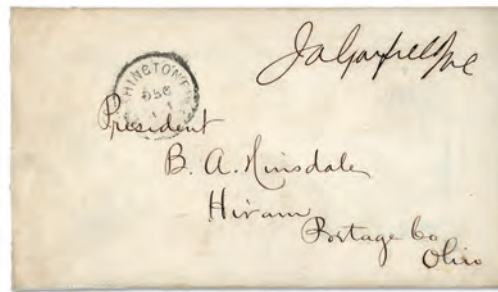 J A Garfield MC
HINGTON
DEC
President
B. A. Hinsdale
Hiram
Portage Co
Ohio